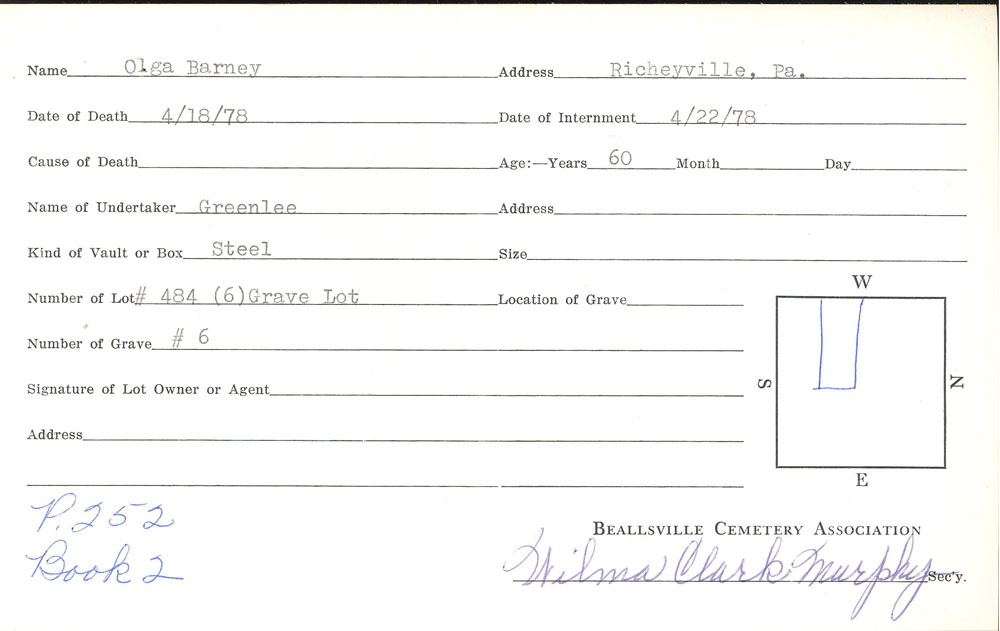 Name Olga Barney Address Richeyville, Pa.
Date of Death 4/18/78 Date of Internment 4/22/78
Cause of Death Age:—Years 60 Month Day
Name of Undertaker Greenlee Address
Kind of Vault or Box Steel Size
Number of Lot # 484 (6)Grave Lot Location of Grave
W
Number of Grave # 6
S N
Signature of Lot Owner or Agent
Address
E
P. 252
Book 2
BEALLSVILLE CEMETERY ASSOCIATION
Wilma Clark Murphy Sec'y.